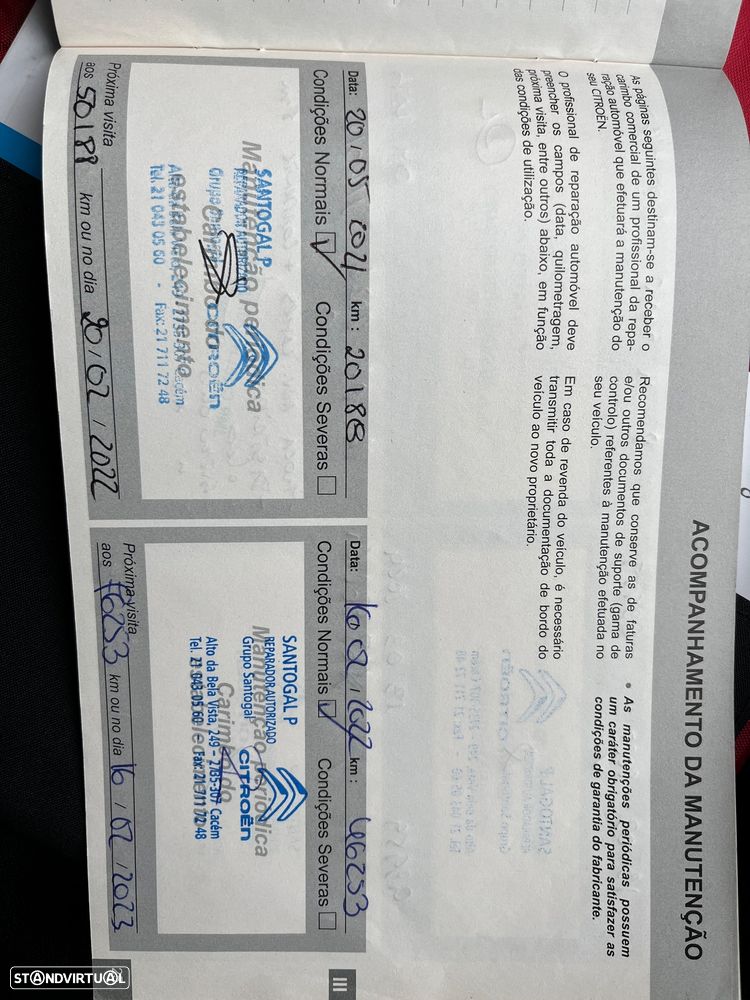 ACOMPANHAMENTO DA MANUTENÇÃO
As páginas seguintes destinam-se a receber o
carimbo comercial de um profissional da repa-
ração automóvel que efetuará a manutenção do
seu CITROËN.
O profissional de reparação automóvel deve
preencher os campos (data, quilometragem,
próxima visita, entre outros) abaixo, em função
das condições de utilização.
Recomendamos que conserve as de faturas
e/ou outros documentos de suporte (gama de
controlo) referentes à manutenção efetuada no
seu veículo.
Em caso de revenda do veículo, é necessário
transmitir toda a documentação de bordo do
veículo ao novo proprietário.
• As manutenções periódicas possuem
um caráter obrigatório para satisfazer as
condições de garantia do fabricante.
Data: 20/05/2021 km: 20188
Condições Normais ☑ Condições Severas ☐
Manutenção periódica
Carimbo do
estabelecimento
SANTOGAL P
REPARADOR AUTORIZADO
Grupo Santogal
CITROËN
Tel. 21 043 05 60 - Fax: 21 711 72 48
Próxima visita
aos 50188 km ou no dia 20/02/2022
Data: 16/02/2022 km: 46253
Condições Normais ☑ Condições Severas ☐
Manutenção periódica
Carimbo do
SANTOGAL P
REPARADOR AUTORIZADO
Grupo Santogal
CITROËN
Alto da Bela Vista, 249 - 2735-307 Cacém
Tel. 21 043 05 60 - Fax: 21 711 72 48
Próxima visita
aos 76253 km ou no dia 16/02/2023
III
STANDVIRTUAL